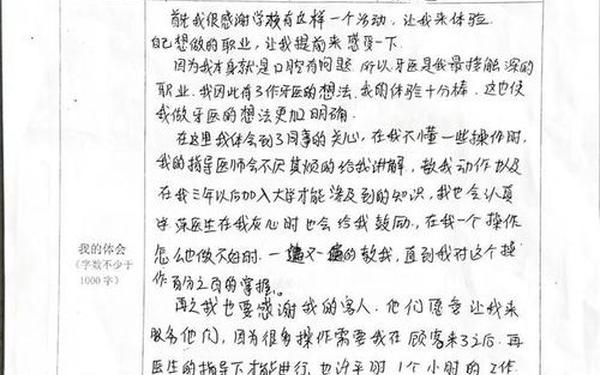 首先我很感谢学校有这样一个活动，让我来体验
自己想做的职业，让我提前来感受一下.
因为我本身就是口腔有问题.所以牙医是我最接触深的
职业.我因此有了作牙医的想法.我的体验十分棒.这也使
我做牙医的想法更加明确.
在这里我体会到了同事的关心，在我不懂一些操作时，
我的指导医师会不厌其烦的给我讲解，教我动作以及
在我三年以后加入大学才能涉及到的知识，我也会认真
学.医生在我灰心时也会给我鼓励.，在我一个操作
怎么也做不好时.一遍又一遍的教我，直到我对这个操
作百分之百的掌握。
再之我也要感谢我的客人.他们愿意让我来
服务他们，因为很多操作需要我在顾客来了之后.再
医生的指导下才能进行.也许平时1个小时的工作.
我的体会
（字数不少于
1000字）